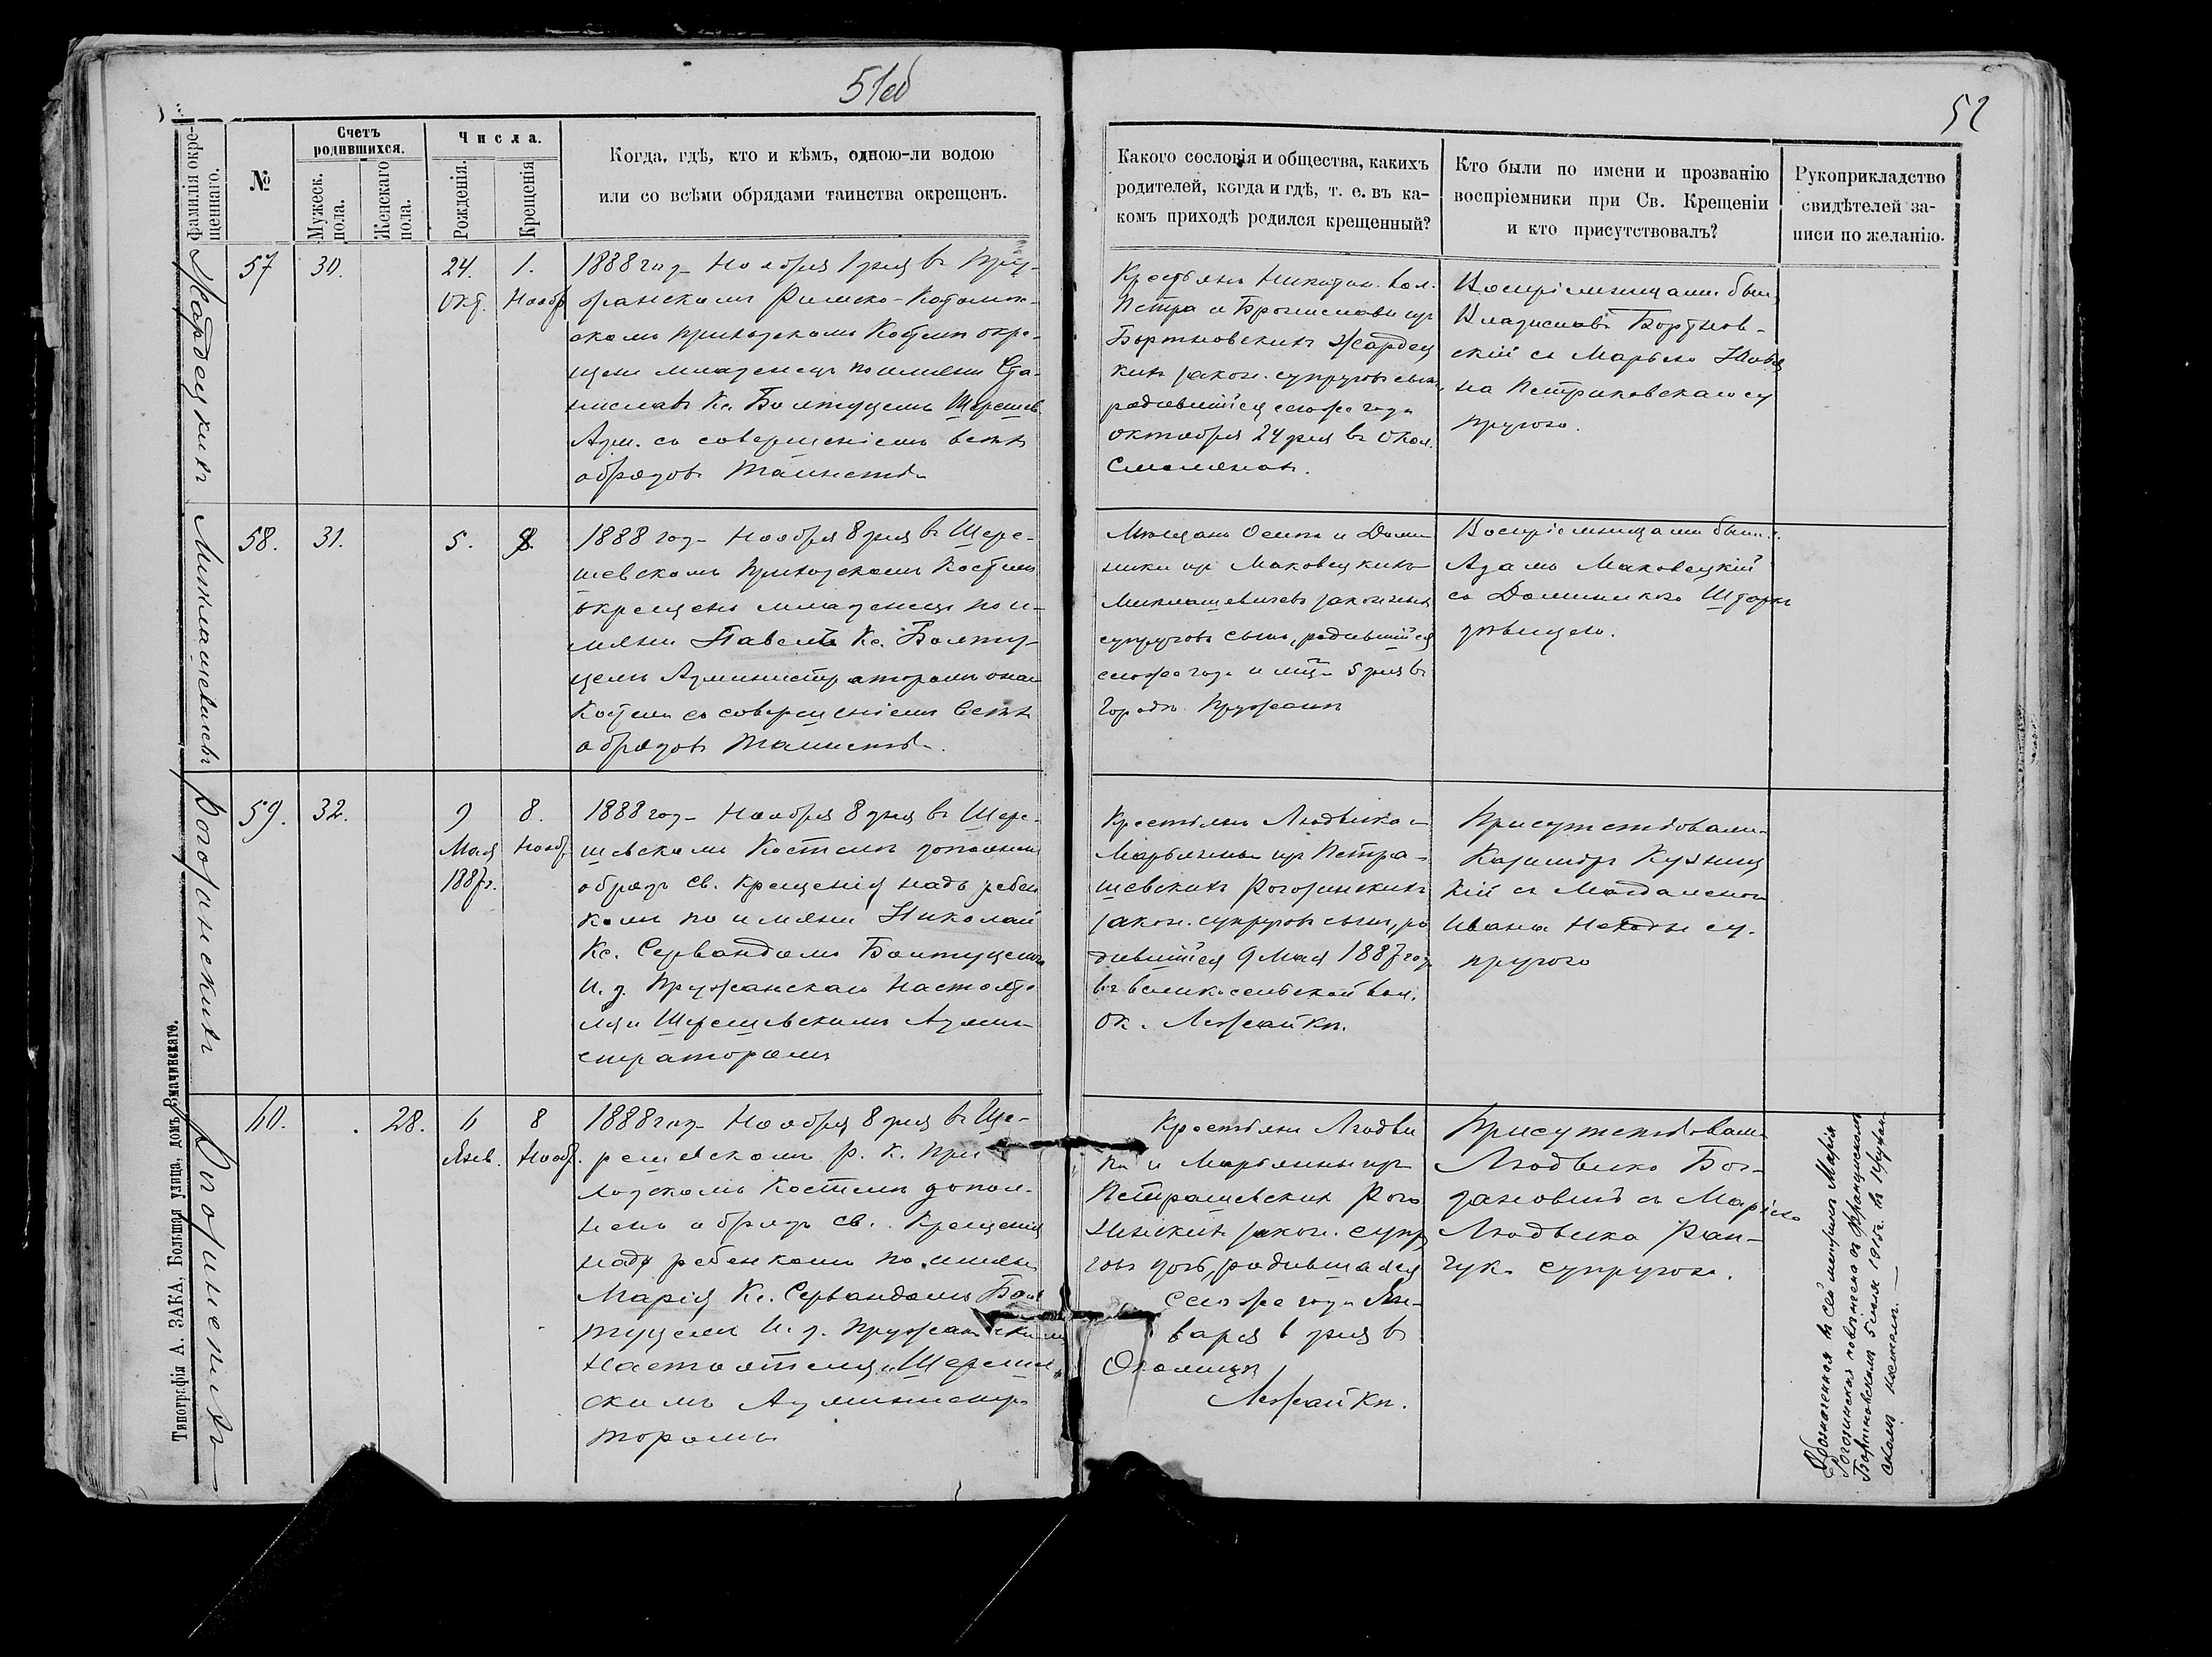 51об
52
Фамилія окре-
щеннаго.
№
Счетъ
родившихся.
Мужеск.
пола.
Женскаго
пола.
Числа.
Рожденія.
Крещенія
Когда, гдѣ, кто и кѣмъ, одною-ли водою
или со всѣми обрядами таинства окрещенъ.
Какого сословія и общества, какихъ
родителей, когда и гдѣ, т. е. въ ка-
комъ приходѣ родился крещенный?
Кто были по имени и прозванію
воспріемники при Св. Крещеніи
и кто присутствовалъ?
Рукоприкладство
свидѣтелей за-
писи по желанію.
Жардецкихъ
57
30.
24.
Окт.
1.
Нояб
1888 год Ноября 1 дня въ Пру-
жанскомъ Римско-Католич-
скомъ приходскомъ Костелѣ окре-
щенъ младенецъ по имяни Ста-
ниславъ Кс. Болтуцемъ Шерешев.
Адм. со совершеніемъ всѣхъ
обрядовъ таинства
Крестьянъ
Петра и Брониславы изъ
Бортновскихъ Жардец
кихъ закон. супруговъ сынъ,
родившійся сего же года
октября 24 дня въ Окол.
Воспріемницами были
Владиславъ Бортнов-
скій съ Марьею
на Петриковскаго су
пругою.
Миклашевичевъ
58.
31.
5.
8.
1888 год Ноября 8 дня въ Шере-
шевскомъ приходскомъ Костелѣ
окрещенъ младенецъ по и-
мяни Павелъ Кс. Болту-
цемъ Администраторомъ онаго
Костела со совершеніемъ всѣхъ
обрядовъ таинства.
Мѣщанъ Осипа и Доми
ники изъ Маковецкихъ
Миклашевичевъ законныхъ
супруговъ сынъ, родившійся
сего же года и мца 5 дня въ
Городѣ Пружанѣ
Воспріемницами были
Адамъ Маковецкій
со Доминикою
дѣвицею.
Рогозинскихъ
59.
32.
9
Мая
1887г.
8.
Нояб.
1888 год Ноября 8 дня въ Шере-
шевскомъ Костелѣ дополненъ
обрядъ св. крещенія надъ ребен
комъ по имяни Николай
Кс. Сервандомъ Болтуцемъ
И. д. Пружанскаго Настояте
ля и Шерешевскимъ Админи
страторомъ
Крестьянъ Людвика и
Марьянны изъ Петра-
шевскихъ Рогозинскихъ
закон. супруговъ сынъ, ро
дившійся 9 Мая 1887 года
въ Великосельской вол.
ок. Лежайкѣ.
Присутствовали
Казиміръ Кузниц
кій съ Магдаленою
Ивана су-
пругою
Рогозинскихъ
60.
28.
6
Янв.
8
Нояб.
1888 год Ноября 8 дня въ Ше-
решевскомъ р. к. при
ходскомъ Костелѣ допол-
ненъ обрядъ св. Крещенія
надъ ребенкомъ по имяни
Марія Кс. Сервандомъ Бол
туцемъ И. д. Пружанскимъ
Настоятеля и Шерешев
скимъ Администра
торомъ
Крестьянъ Людви
ка и Марьянны изъ
Петрашевскихъ Рого
зинскихъ закон. супру
говъ дочь, родившаяся
сего же года Ян-
варя 6 дня въ
Околицѣ
Лежайкѣ.
Присутствовали
Людвикъ Бог-
дановичъ съ Маріею
Людвика Ран-
чука супругою.
Обозначенная въ сей метрикѣ Марія
Рогозинская повѣнчена съ Францискомъ
Бортновскимъ 5 1915г. въ Пружан-
скомъ костелѣ.
Типографія А. ЗАКА, Большая улица, домъ Значинскаго.